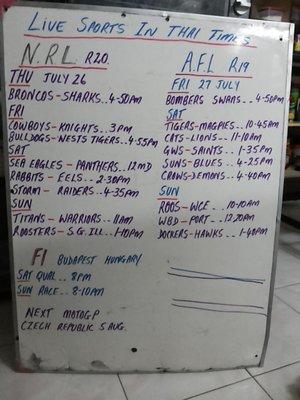 LIVE SPORTS IN THAI TIMES
N.R.L R20.
THU JULY 26
BRONCOS-SHARKS..4-50PM
FRI
COWBOYS-KNIGHTS..3PM
BULLDOGS-WESTS TIGERS..4-55PM
SAT
SEA EAGLES - PANTHERS..12MD
RABBITS - EELS..2-30PM
STORM - RAIDERS..4-35PM
SUN
TITANS - WARRIORS..11AM
ROOSTERS - S.G. ILL..1-10PM
F1 BUDAPEST HUNGARY
SAT QUAL.. 8PM
SUN RACE.. 8-10PM
NEXT MOTOGP
CZECH REPUBLIC 5 AUG.
A.F.L R19
FRI 27 JULY
BOMBERS SWANS..4-50PM
SAT
TIGERS-MAGPIES..10-45AM
CATS-LIONS..11-10AM
GWS-SAINTS..1-35PM
SUNS-BLUES..4-25PM
CROWS-DEMONS..4-40PM
SUN
ROOS-WCE..10-10AM
WBD-PORT..12.20PM
DOCKERS-HAWKS..1-40PM